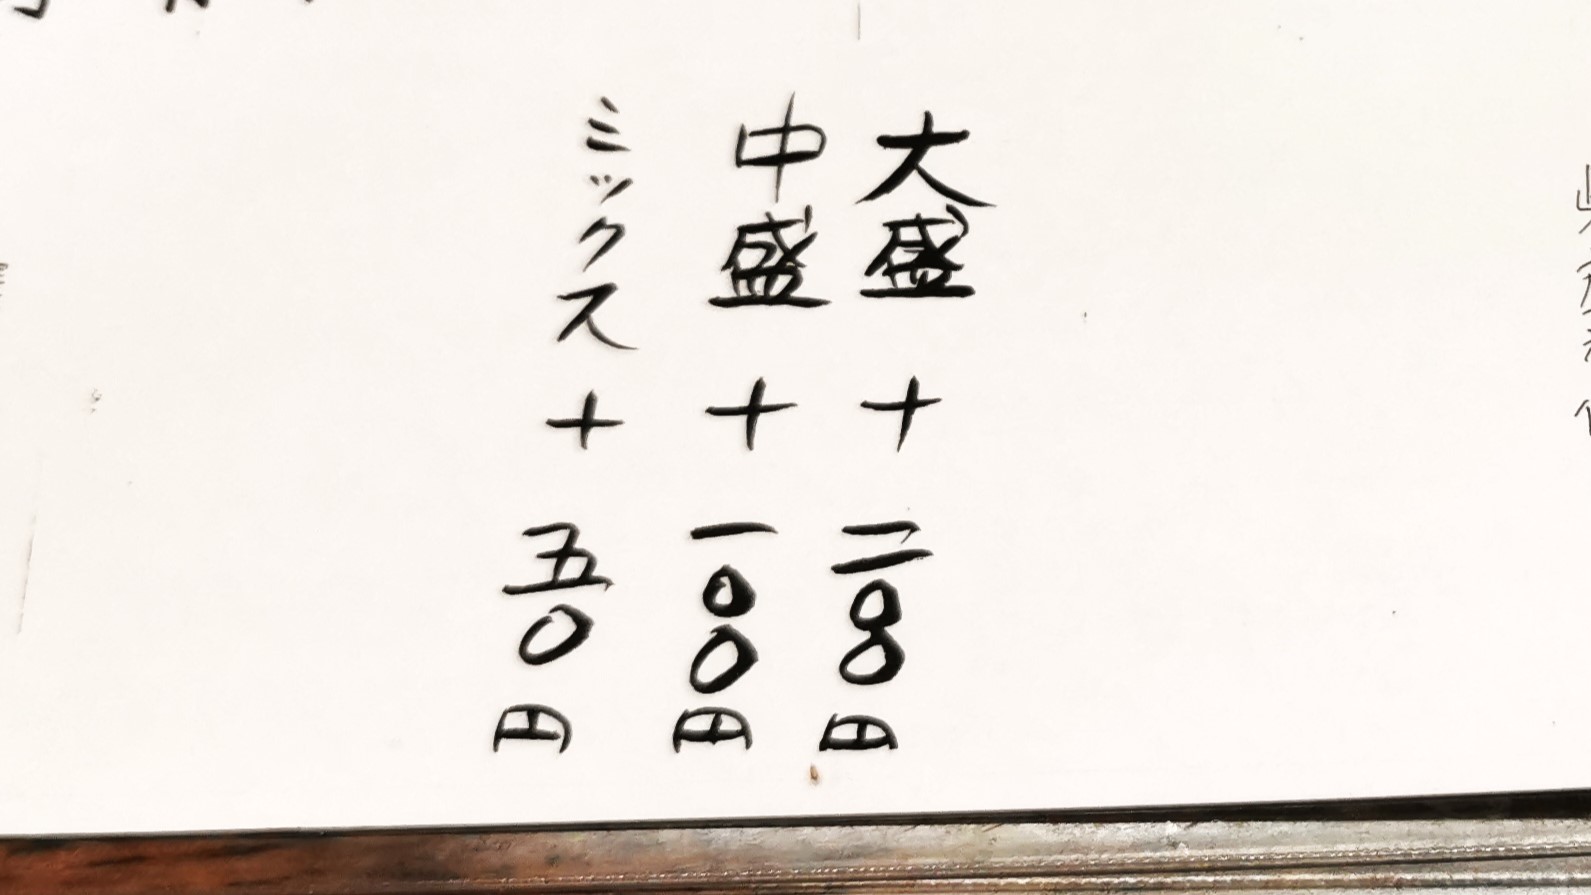 大盛+二〇〇円
中盛+一〇〇円
ミックス+五〇円